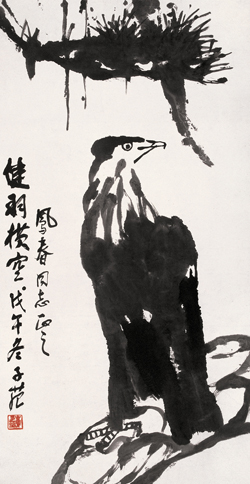 鳳春同志正之
健羽橫空戊午冬子范